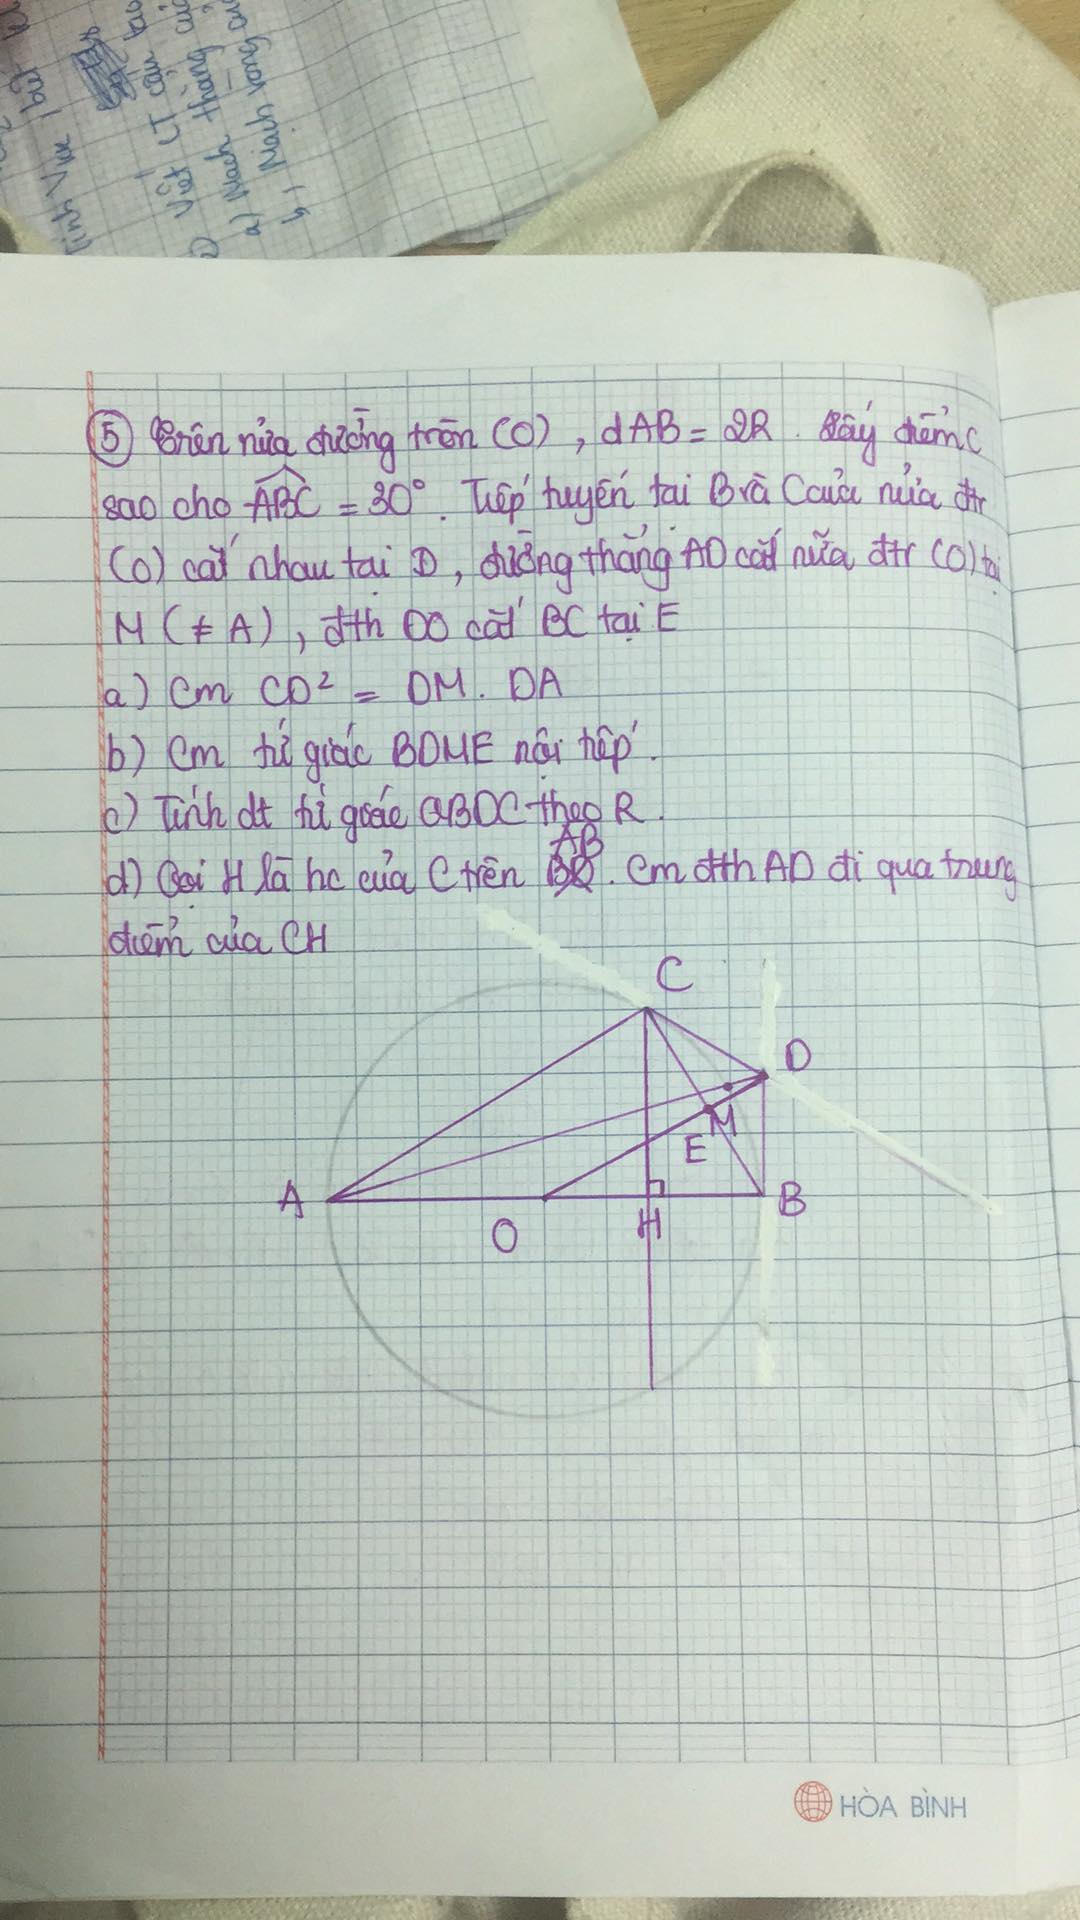 Tính Vm
Viết
a) Mạch thẳng
b, Mạch vòng
⑤ Trên nửa đường tròn (O), dAB = 2R. Lấy điểm C
sao cho ABC = 30°. Tiếp tuyến tại B và C của nửa đtr
(O) cắt nhau tại D, đường thẳng AD cắt nửa đtr (O) tại
M (≠ A), đth DO cắt BC tại E
a) Cm CD² = DM. DA
b) Cm tứ giác BDME nội tiếp.
c) Tính dt tứ giác OBDC theo R.
d) Gọi H là hc của C trên AB. Cm đth AD đi qua trung
điểm của CH
C
D
M
E
A
B
O
H
HÒA BÌNH